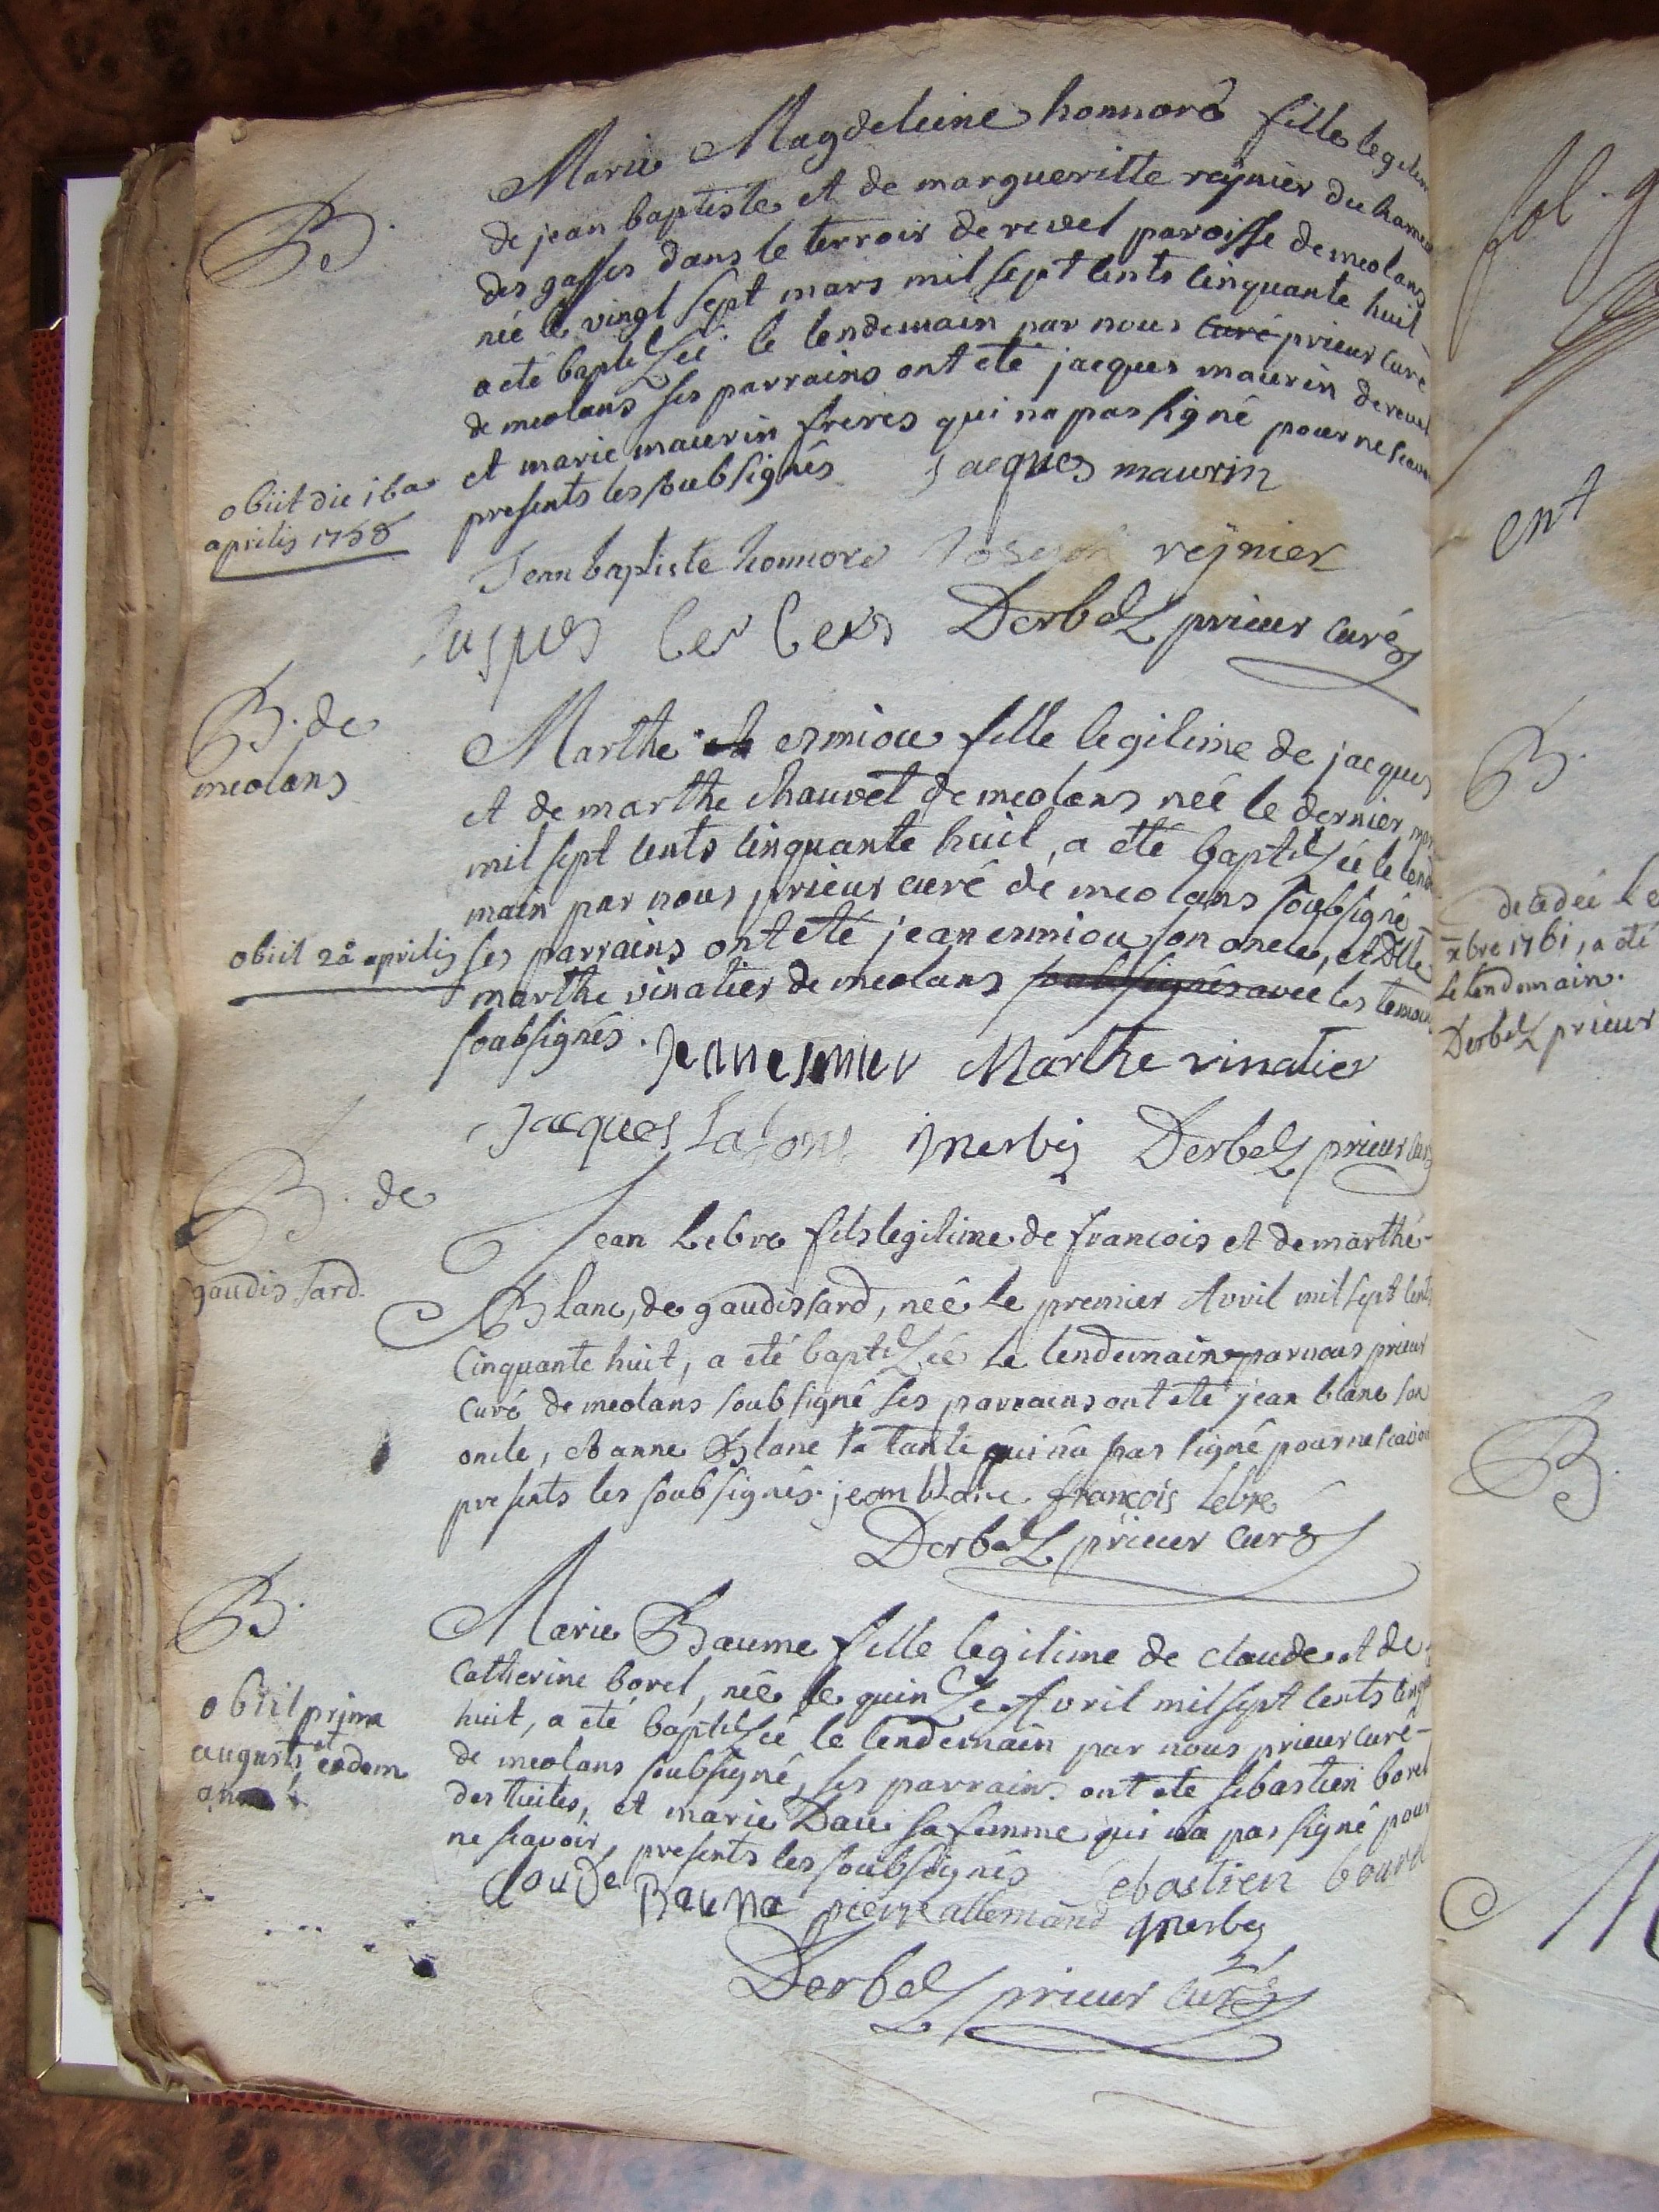 Marie Magdeleine honnoré fille legitim
B.
de jean baptiste et de margueritte reÿnier du hameau
des gasses dans le terroir de revel paroisse de meolans
née le vingt sept mars mil sept cents cinquante huit
a eté baptisée le lendemain par nous curé prieur curé
de meolans ses parrains ont eté jacques maurin de revel
et marie maurin freres qui na pas signé pour ne scavoir
presents les soubsignés jacques maurin
obiit die 16a
aprilis 1758
Jean baptiste honnore Joseph reÿnier
Derbez prieur curé
B. de
meolans
Marthe ermiou fille legitime de jacques
et de marthe chauvet de meolans née le dernier mars
mil sept cents cinquante huit, a eté baptisée le lende
main par nous prieur curé de meolans soubsigné
obiit 2a aprilis
ses parrains ont eté jean ermiou son oncle, et Dlle
marthe vinatier de meolans soubsignés avec les temoins
soubsignés. Marthe vinatier
Jacques Derbez prieur curé
B. de
gaudissard.
Jean Lebre fils legitime de francois et de marthe
Blanc, de gaudissard, neé le premier Avril mil sept cents
Cinquante huit, a eté baptisée le lendemain par nous prieur
curé de meolans soubsigné ses parrains ont eté jean blanc son
oncle, et anne Blanc sa tante qui na pas signé pour ne scavoir
presents les soubsignés. jean blanc françois lebre
Derbez prieur curé
B.
Marie Baume fille legitime de claude et de
Catherine borel, née le quinze Avril mil sept cents cinq
huit, a eté baptisée le lendemain par nous prieur curé
de meolans soubsigné, ses parrains ont eté sebastien borel
obiit prima
augusti eodem
des tuiles, et marie Dau sa femme qui na pas signé pour
ne scavoir, presents les soubsignés Sebastien bourel
claude Bauma pierre allemand
Derbez prieur curé
fol. 9
ent
B.
decedeé le
xbre 1761, a eté
le lendemain.
Derbez prieur
B.
M